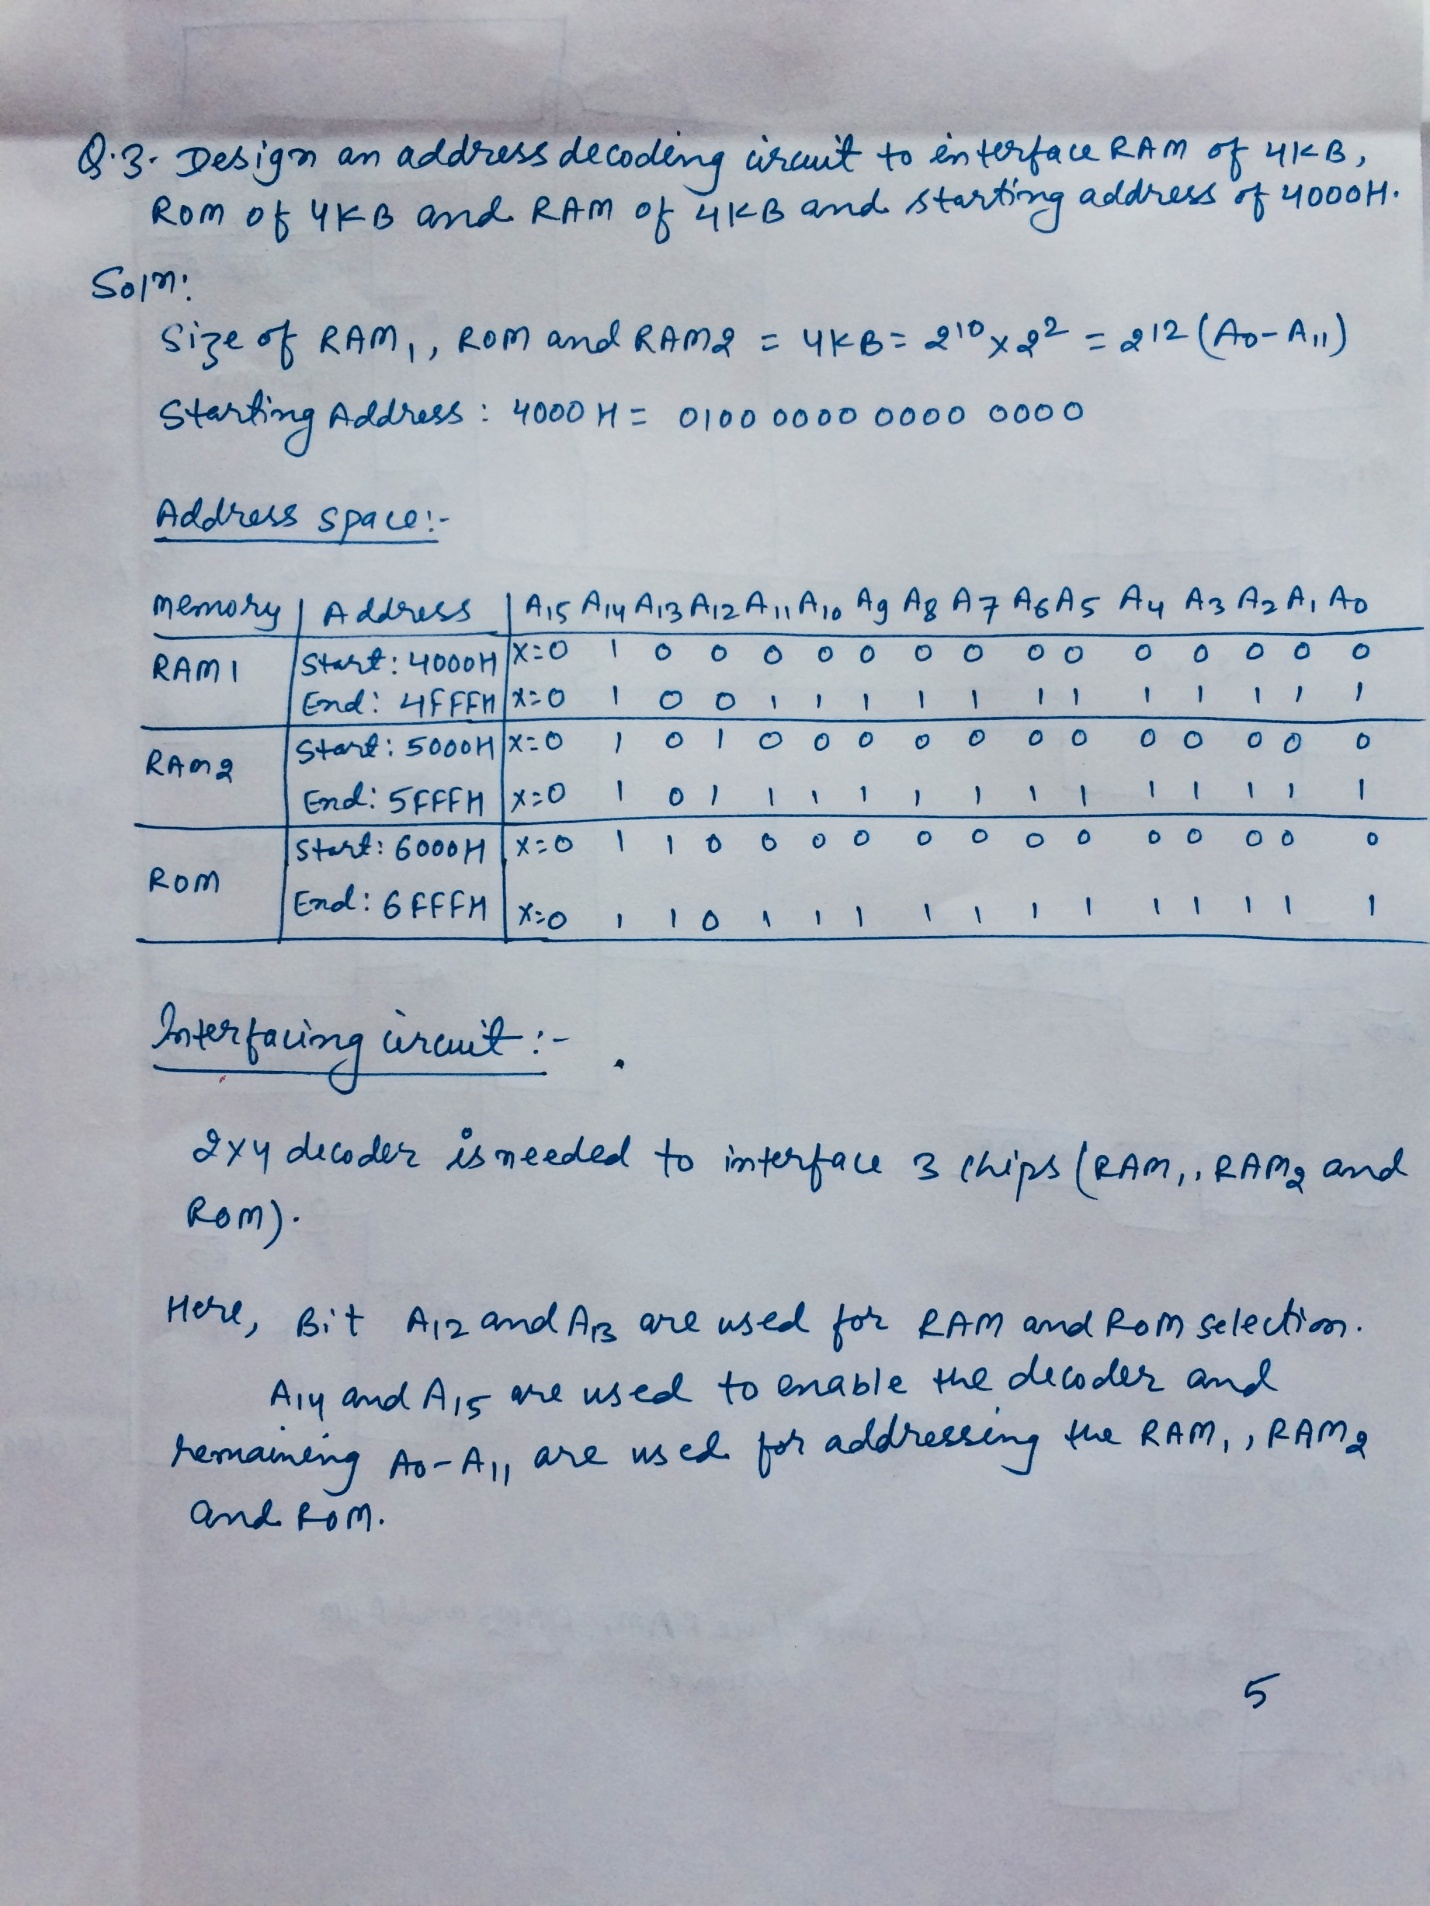 Q.3. Design an address decoding circuit to interface RAM of 4KB,
ROM of 4KB and RAM of 4KB and starting address of 4000H.
Soln:
Size of RAM₁, ROM and RAM2 = 4KB = 2¹⁰ x 2² = 2¹² (A0-A11)
Starting Address : 4000 H = 0100 0000 0000 0000
Address space:-
Memory | Address | A15 A14 A13 A12 A11 A10 A9 A8 A7 A6 A5 A4 A3 A2 A1 A0
RAM 1 | Start: 4000H | X=0 1 0 0 0 0 0 0 0 0 0 0 0 0 0 0
End: 4FFFH | X=0 1 0 0 1 1 1 1 1 1 1 1 1 1 1 1
RAM2 | Start: 5000H | X=0 1 0 1 0 0 0 0 0 0 0 0 0 0 0 0
End: 5FFFH | X=0 1 0 1 1 1 1 1 1 1 1 1 1 1 1 1
ROM | Start: 6000H | X=0 1 1 0 0 0 0 0 0 0 0 0 0 0 0 0
End: 6FFFH | X=0 1 1 0 1 1 1 1 1 1 1 1 1 1 1 1
Interfacing circuit :-
2x4 decoder is needed to interface 3 chips (RAM₁, RAM2 and
ROM).
Here, Bit A12 and A13 are used for RAM and ROM selection.
A14 and A15 are used to enable the decoder and
remaining A0-A11 are used for addressing the RAM₁, RAM2
and ROM.
5